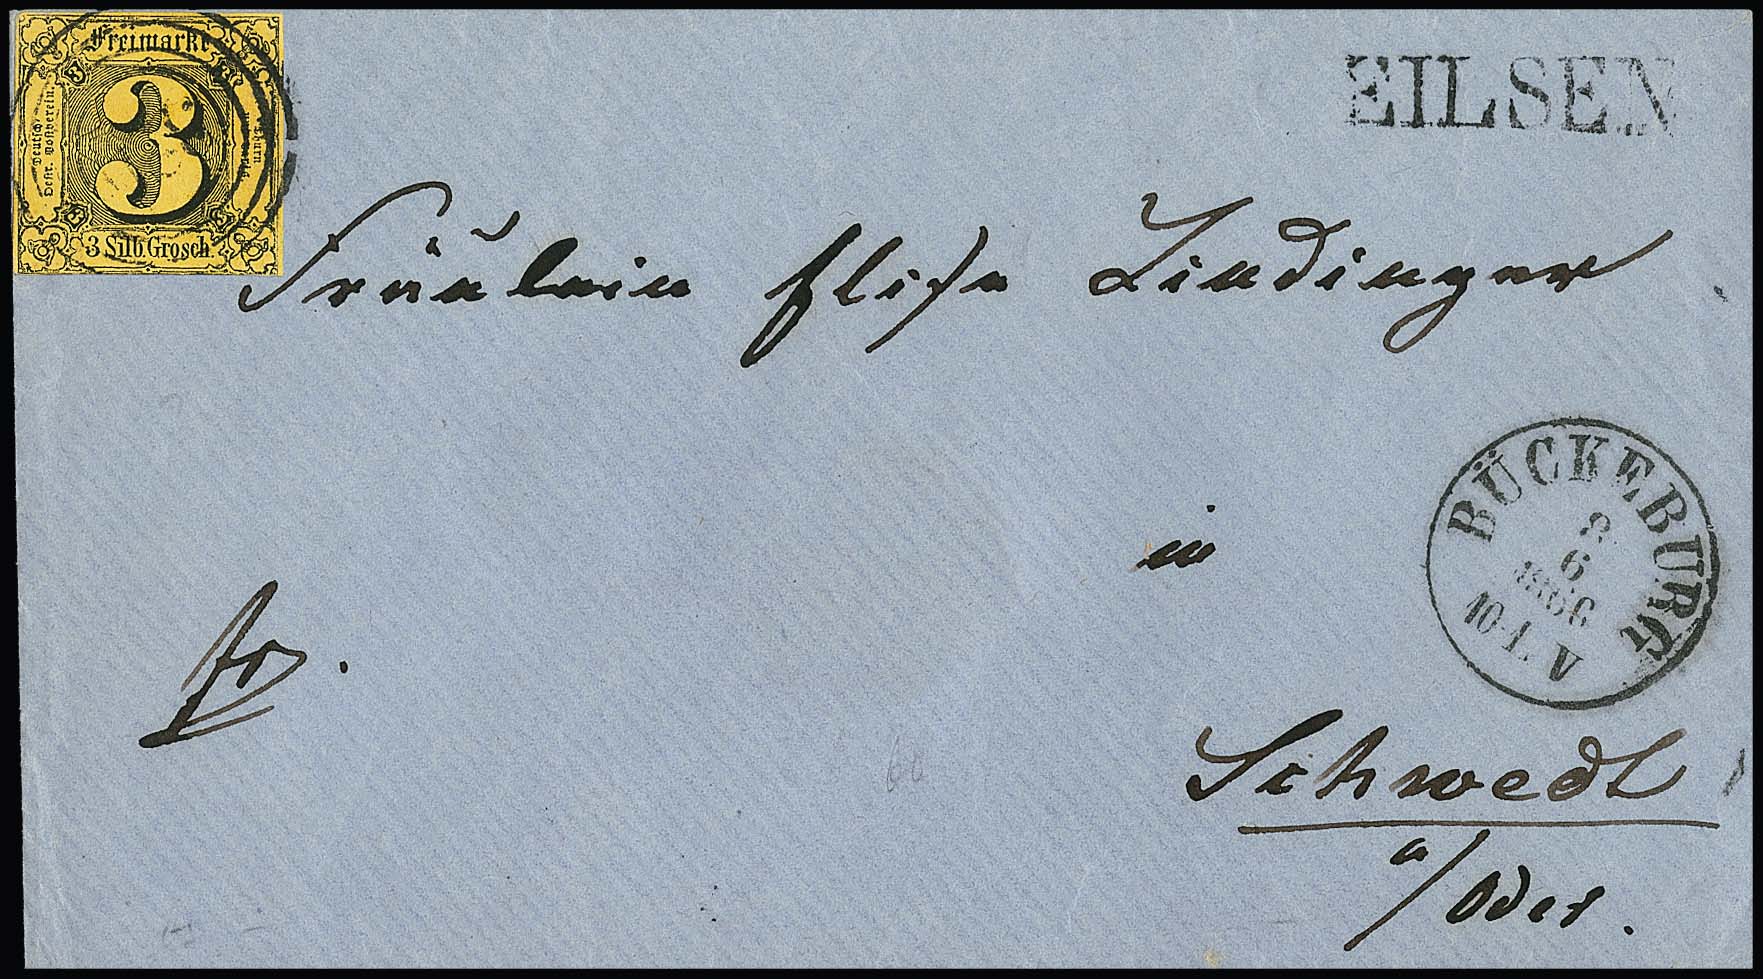 Freimarke
Deutsch-
Oestr. Postverein.
3
3 Silb. Grosch.
EILSEN
Fräulein Elise Lindinger
in
BÜCKEBURG
8
6
1866
10-1. A
fr.
Schwedt
a/Oder.